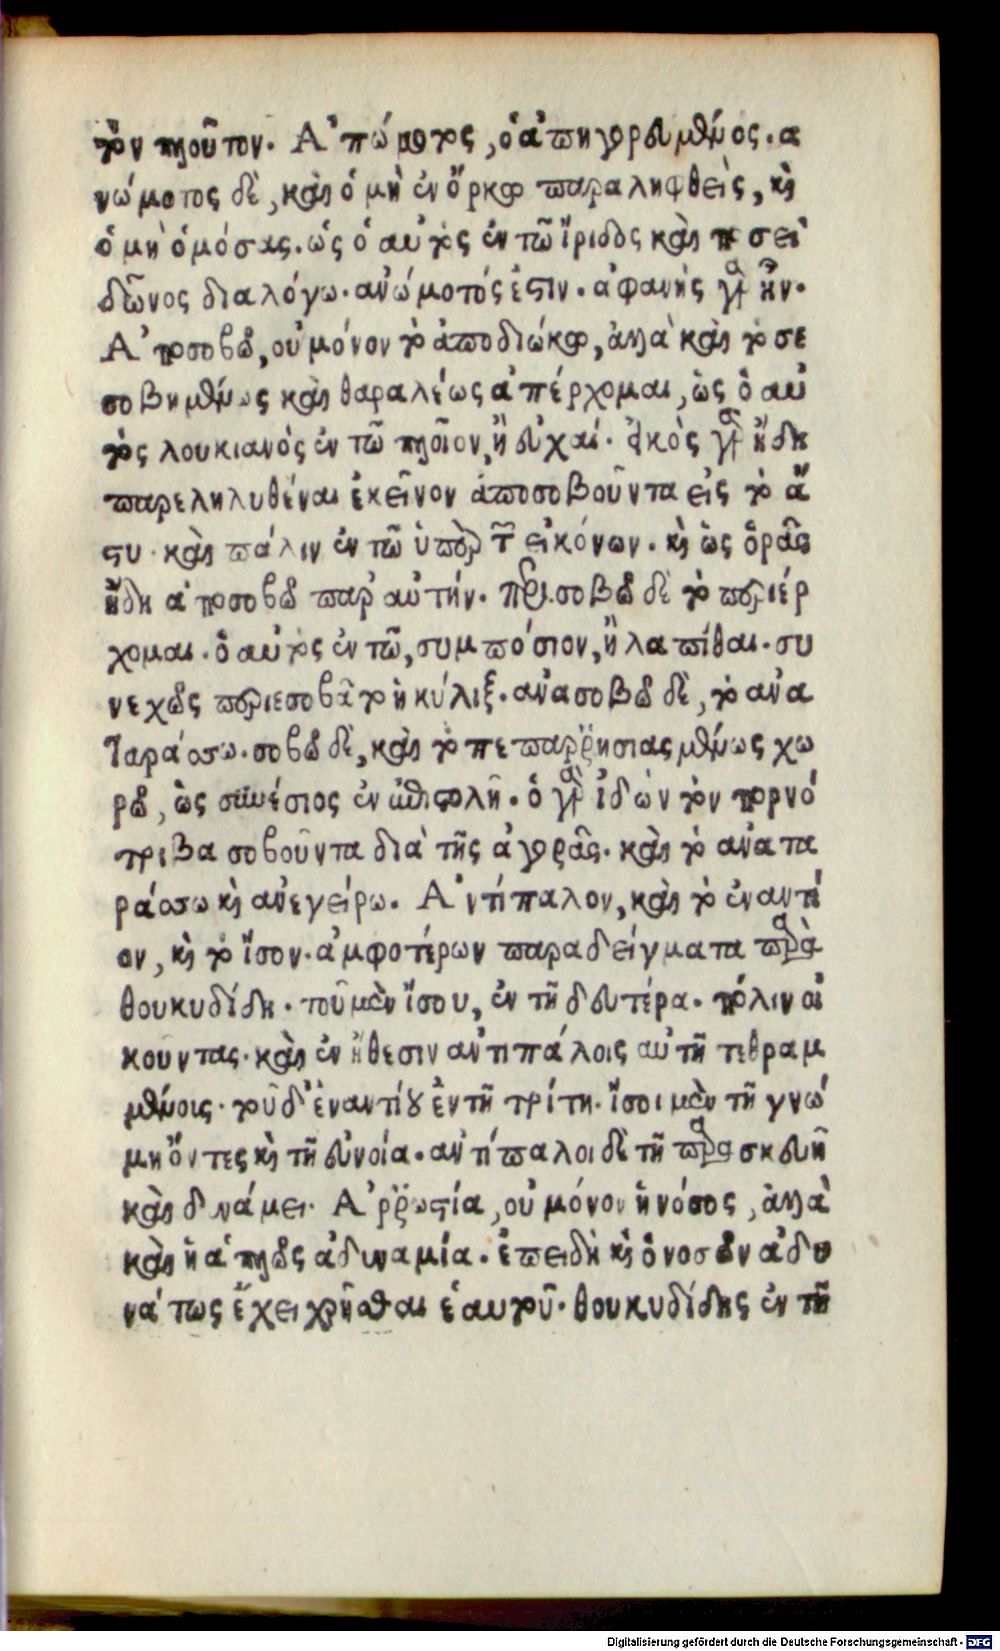 τὸν πλοῦτον. Ἀπώμοτος, ὁ ἀπηγορευμένος. α
νώμοτος δὲ, καὶ ὁ μὴ ἐν ὅρκῳ παραληφθεὶς, κὶ
ὁ μὴ ὁμόσας. ὡς ὁ αὐτὸς ἐν τῶ ἴριδος καὶ ποσει
δῶνος διαλόγω. ανώμοτός ἐστιν. ἀφανὴς γὰρ ἦν.
Ἀποσοβῶ, οὐ μόνον τὸ ἀποδιώκω, ἀλλὰ καὶ τὸ σε
σοβημένως καὶ θαραλέως ἀπέρχομαι, ὡς ὁ αὐ
τὸς λουκιανὸς ἐν τῶ πλοῖον, ἢ εὐχαί. εἰκὸς γὰρ ἤδη
παρεληλυθέναι ἐκεῖνον ἀποσοβοῦντα εἰς τὸ ἄ
στυ. καὶ πάλιν ἐν τῶ ὑπὲρ τῶν εἰκόνων. κὶ ὡς ὁρᾶς
ἤδη ἀποσοβῶ παρ' αὐτήν. Περισοβῶ δὲ τὸ περιέρ
χομαι. ὁ αὐτὸς ἐν τῶ, συμπόσιον, ἢ λαπίθαι. συ
νεχῶς περιεσοβεῖτο ἡ κύλιξ. ανασοβῶ δὲ, τὸ ανα
ταράσσω. σοβῶ δὲ, καὶ τὸ πεπαρρησιασμένως χω
ρῶ, ὡς συνέσιος ἐν ἐπιστολῆ. ὁ γὰρ ἰδὼν τὸν πορνό
τριβα σοβοῦντα διὰ τῆς ἀγορᾶς. καὶ τὸ ανατα
ράσσω κὶ ανεγείρω. Ἀντίπαλον, καὶ τὸ ἐναντί
ον, κὶ τὸ ἴσον. ἀμφοτέρων παραδείγματα παρὰ
θουκυδίδη. τοῦ μὲν ἴσου, ἐν τῆ δευτέρα. πόλιν οἰ
κοῦντας. καὶ ἐν ἤθεσιν αντιπάλοις αὐτῆ τεθραμ
μένοις. τοῦ δ' ἐναντίου ἐν τῆ τρίτη. ἴσοι μὲν τῆ γνώ
μη ὄντες κὶ τῆ εὐνοία. αντίπαλοι δὲ τῆ παρασκευῆ
καὶ δυνάμει. Ἀρρωστία, οὐ μόνον ἡ νόσος, ἀλλὰ
καὶ ἡ ἁπλῶς ἀδυναμία. ἐπειδὴ κὶ ὁ νοσῶν ἀδυ
νάτως ἔχει χρῆσθαι ἑαυτοῦ. θουκυδίδης ἐν τῆ
Digitalisierung gefördert durch die Deutsche Forschungsgemeinschaft - DFG